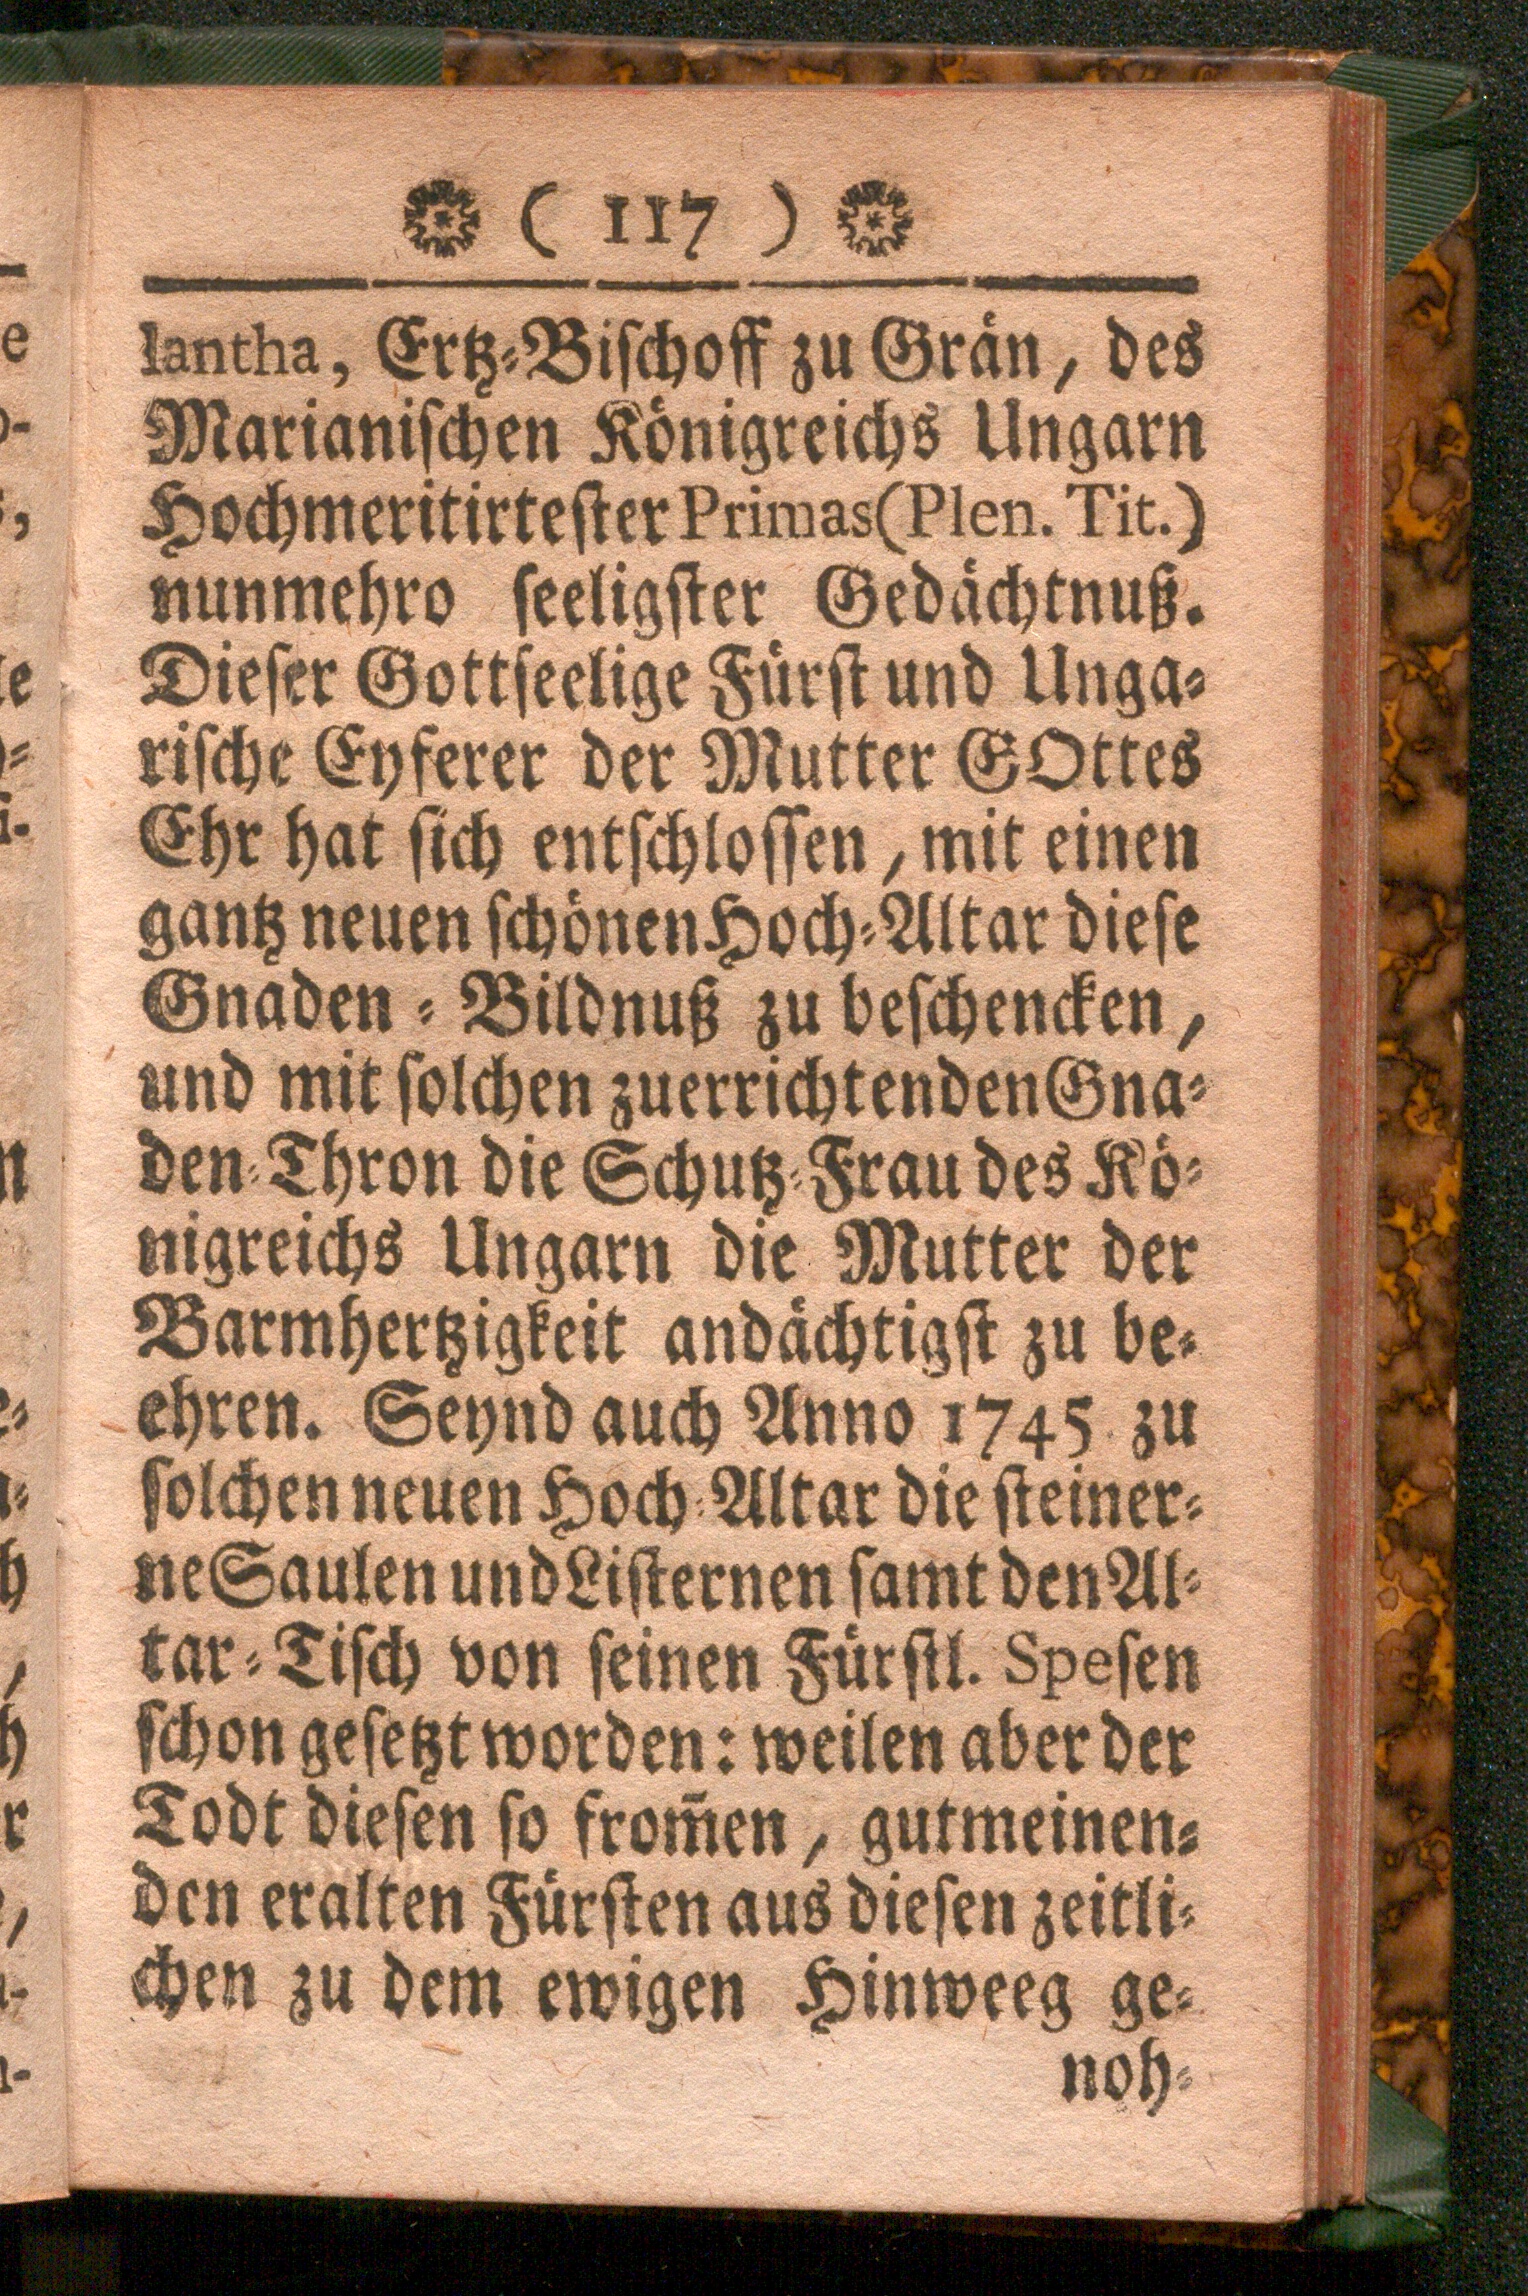 ( 117 )
lantha, Ertz-Bischoff zu Grän, des
Marianischen Königreichs Ungarn
Hochmeritirtester Primas (Plen. Tit.)
nunmehro seeligster Gedächtnuß.
Dieser Gottseelige Fürst und Unga-
rische Eyferer der Mutter GOttes
Ehr hat sich entschlossen, mit einen
gantz neuen schönen Hoch-Altar diese
Gnaden-Bildnuß zu beschencken,
und mit solchen zuerrichtenden Gna-
den-Thron die Schutz-Frau des Kö-
nigreichs Ungarn die Mutter der
Barmhertzigkeit andächtigst zu be-
ehren. Seynd auch Anno 1745. zu
solchen neuen Hoch-Altar die steiner-
ne Saulen und Listernen samt den Al-
tar-Tisch von seinen Fürstl. Spesen
schon gesetzt worden: weilen aber der
Todt diesen so from̄en, gutmeinen-
den eralten Fürsten aus diesen zeitli-
chen zu dem ewigen Hinweeg ge-
noh-